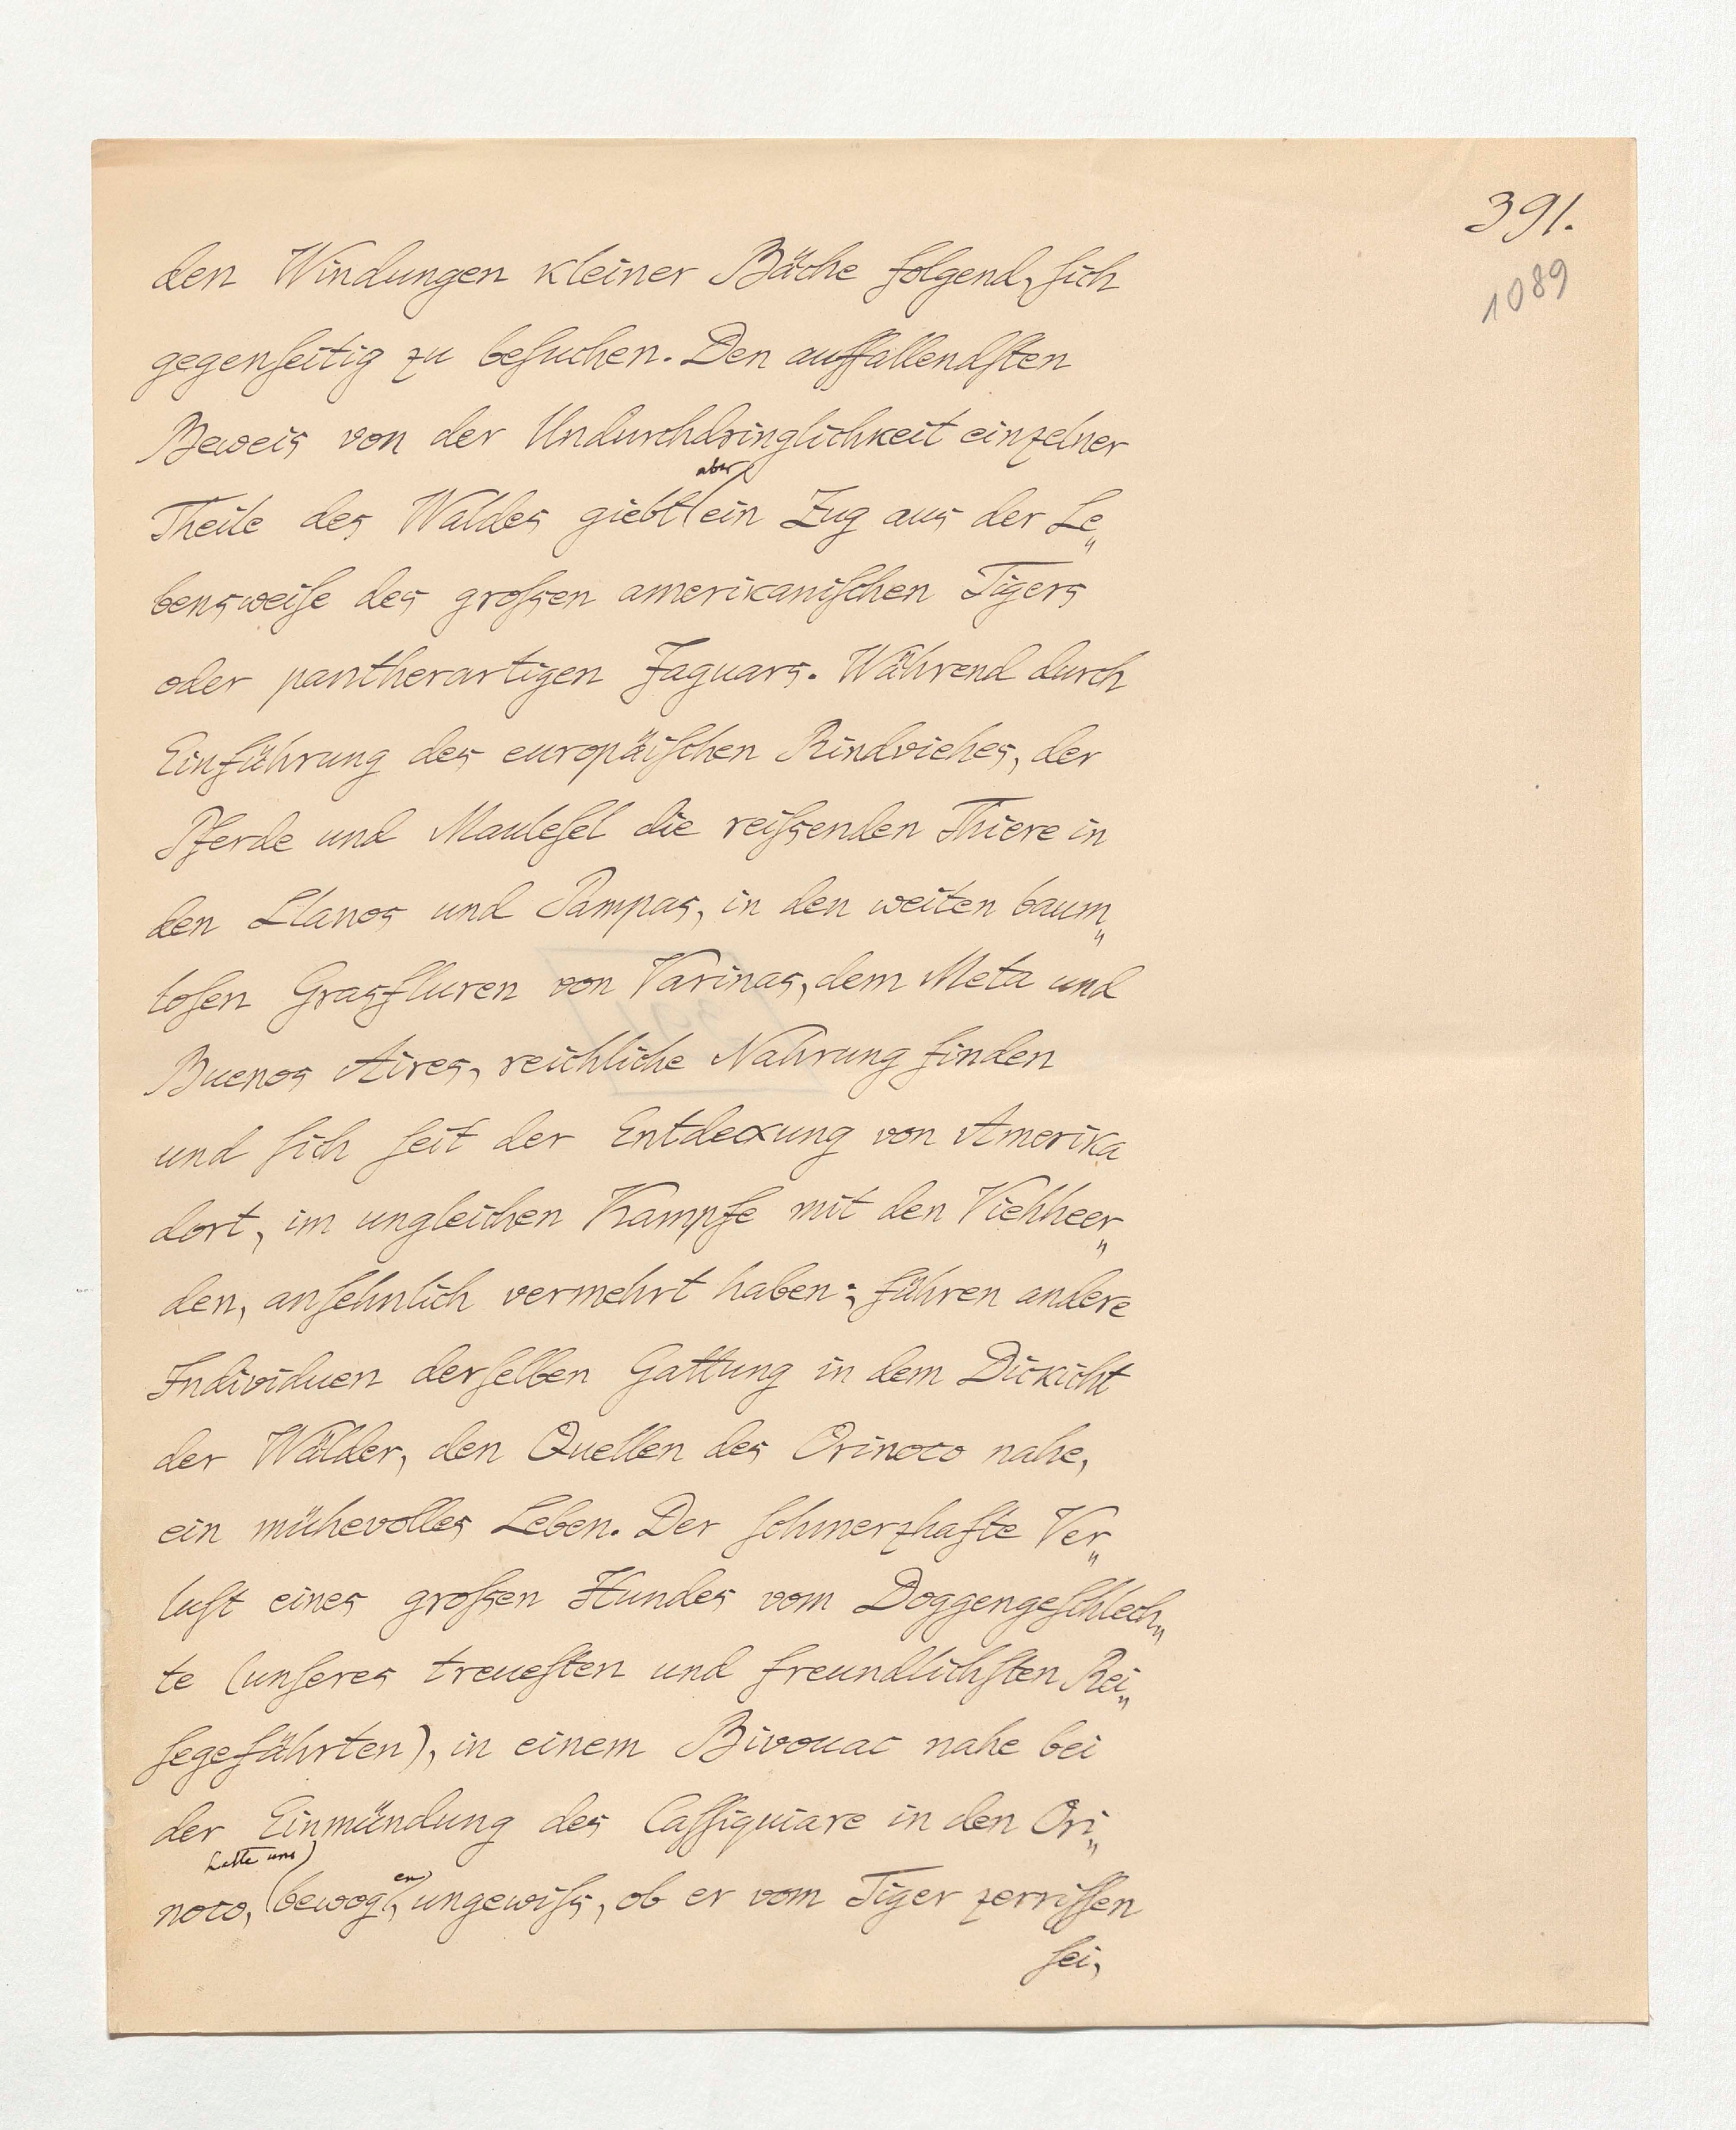 391.
1089
den Windungen kleiner Bäche folgend, ſich
gegenſeitig zu beſuchen. Den auffallendſten
Beweis von der Undurchdringlichkeit einzelner
aber
Theile des Waldes giebt ein Zug aus der Le„
bensweiſe des groſsen amerikaniſchen Tigers
oder pantherartigen Jaguars. Während durch
Einführung des europäiſchen Rindviehes, der
Pferde und Mauleſel die reiſsenden Thiere in
den Llanos und Pampas, in den weiten baum„
loſen Grasfluren von Varinas, dem Meta und
Buenos Aires, reichliche Nahrung finden
und ſich ſeit der Entdeckung von Amerika
dort, im ungleichen Kampfe mit den Viehheer„
den, anſehnlich vermehrt haben; führen andere
Individuen derſelben Gattung in dem Dickicht
der Wälder, den Quellen des Orinoco nahe,
ein mühevolles Leben. Der ſchmerzhafte Ver„
luſt eines groſsen Hundes vom Doggengeſchlech„
te (unſeres treueſten und freundlichſten Rei„
ſegefährten), in einem Bivouac nahe bei
der Einmündung des Caſſiquiare in den Ori„
hatte uns) en
noco, (bewog, ungewiſs, ob er vom Tiger zerriſſen
ſei,